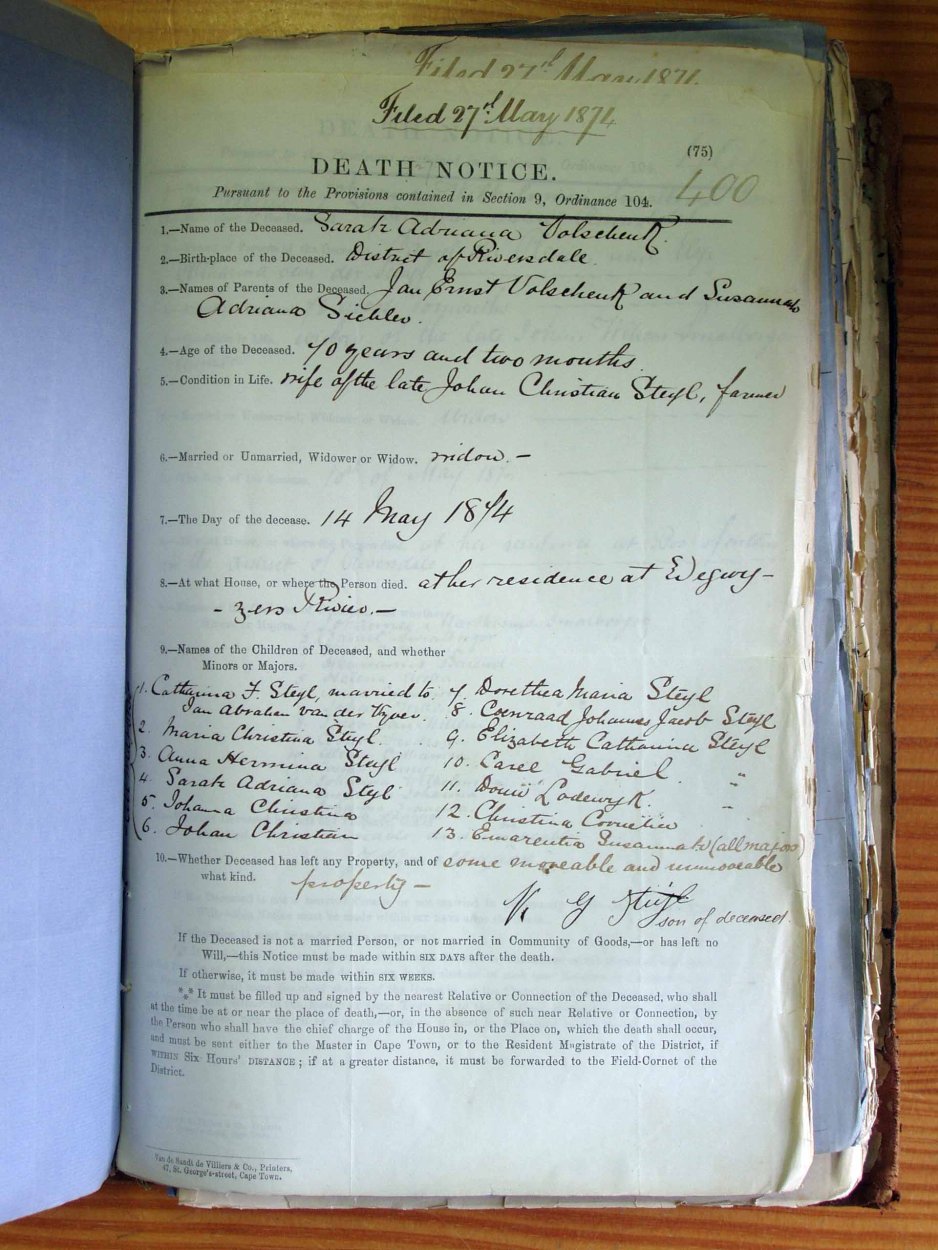 Filed 27d May 1871.
Filed 27d May 1874
(75)
DEATH NOTICE.
400
Pursuant to the Provisions contained in Section 9, Ordinance 104.
1.—Name of the Deceased. Sarah Adriana Volschenk.
2.—Birth-place of the Deceased. District of Riversdale.
3.—Names of Parents of the Deceased. Jan Ernst Volschenk and Susannah
Adriana
4.—Age of the Deceased. 70 years and two months.
5.—Condition in Life. wife of the late Johan Christian Steyl, farmer
6.—Married or Unmarried, Widower or Widow. widow.—
7.—The Day of the decease. 14 May 1874
8.—At what House, or where the Person died. at her residence at
-zers Rivier.—
9.—Names of the Children of Deceased, and whether
Minors or Majors.
1. Catharina F. Steyl, married to
Jan Abraham van der Vyver.
2. Maria Christina Steyl.
3. Anna Hermina Steyl
4. Sarah Adriana Steyl
5. Johanna Christina
6. Johan Christian
7 Dorethea Maria Steyl
8. Coenraad Johannes Jacob Steyl
9. Elizabeth Catharina Steyl
10. Carel Gabriel "
11. Lodewyk. "
12. Christina "
13. Emarentia Susannah (all majors)
10.—Whether Deceased has left any Property, and of some moveable and immoveable
what kind. property—
G Steyl
son of deceased.
If the Deceased is not a married Person, or not married in Community of Goods,—or has left no
Will,—this Notice must be made within SIX DAYS after the death.
If otherwise, it must be made within SIX WEEKS.
*** It must be filled up and signed by the nearest Relative or Connection of the Deceased, who shall
at the time be at or near the place of death,—or, in the absence of such near Relative or Connection, by
the Person who shall have the chief charge of the House in, or the Place on, which the death shall occur,
and must be sent either to the Master in Cape Town, or to the Resident Magistrate of the District, if
WITHIN Six Hours' DISTANCE; if at a greater distance, it must be forwarded to the Field-Cornet of the
District.
Van de Sandt de Villiers & Co., Printers,
47, St. George's-street, Cape Town.